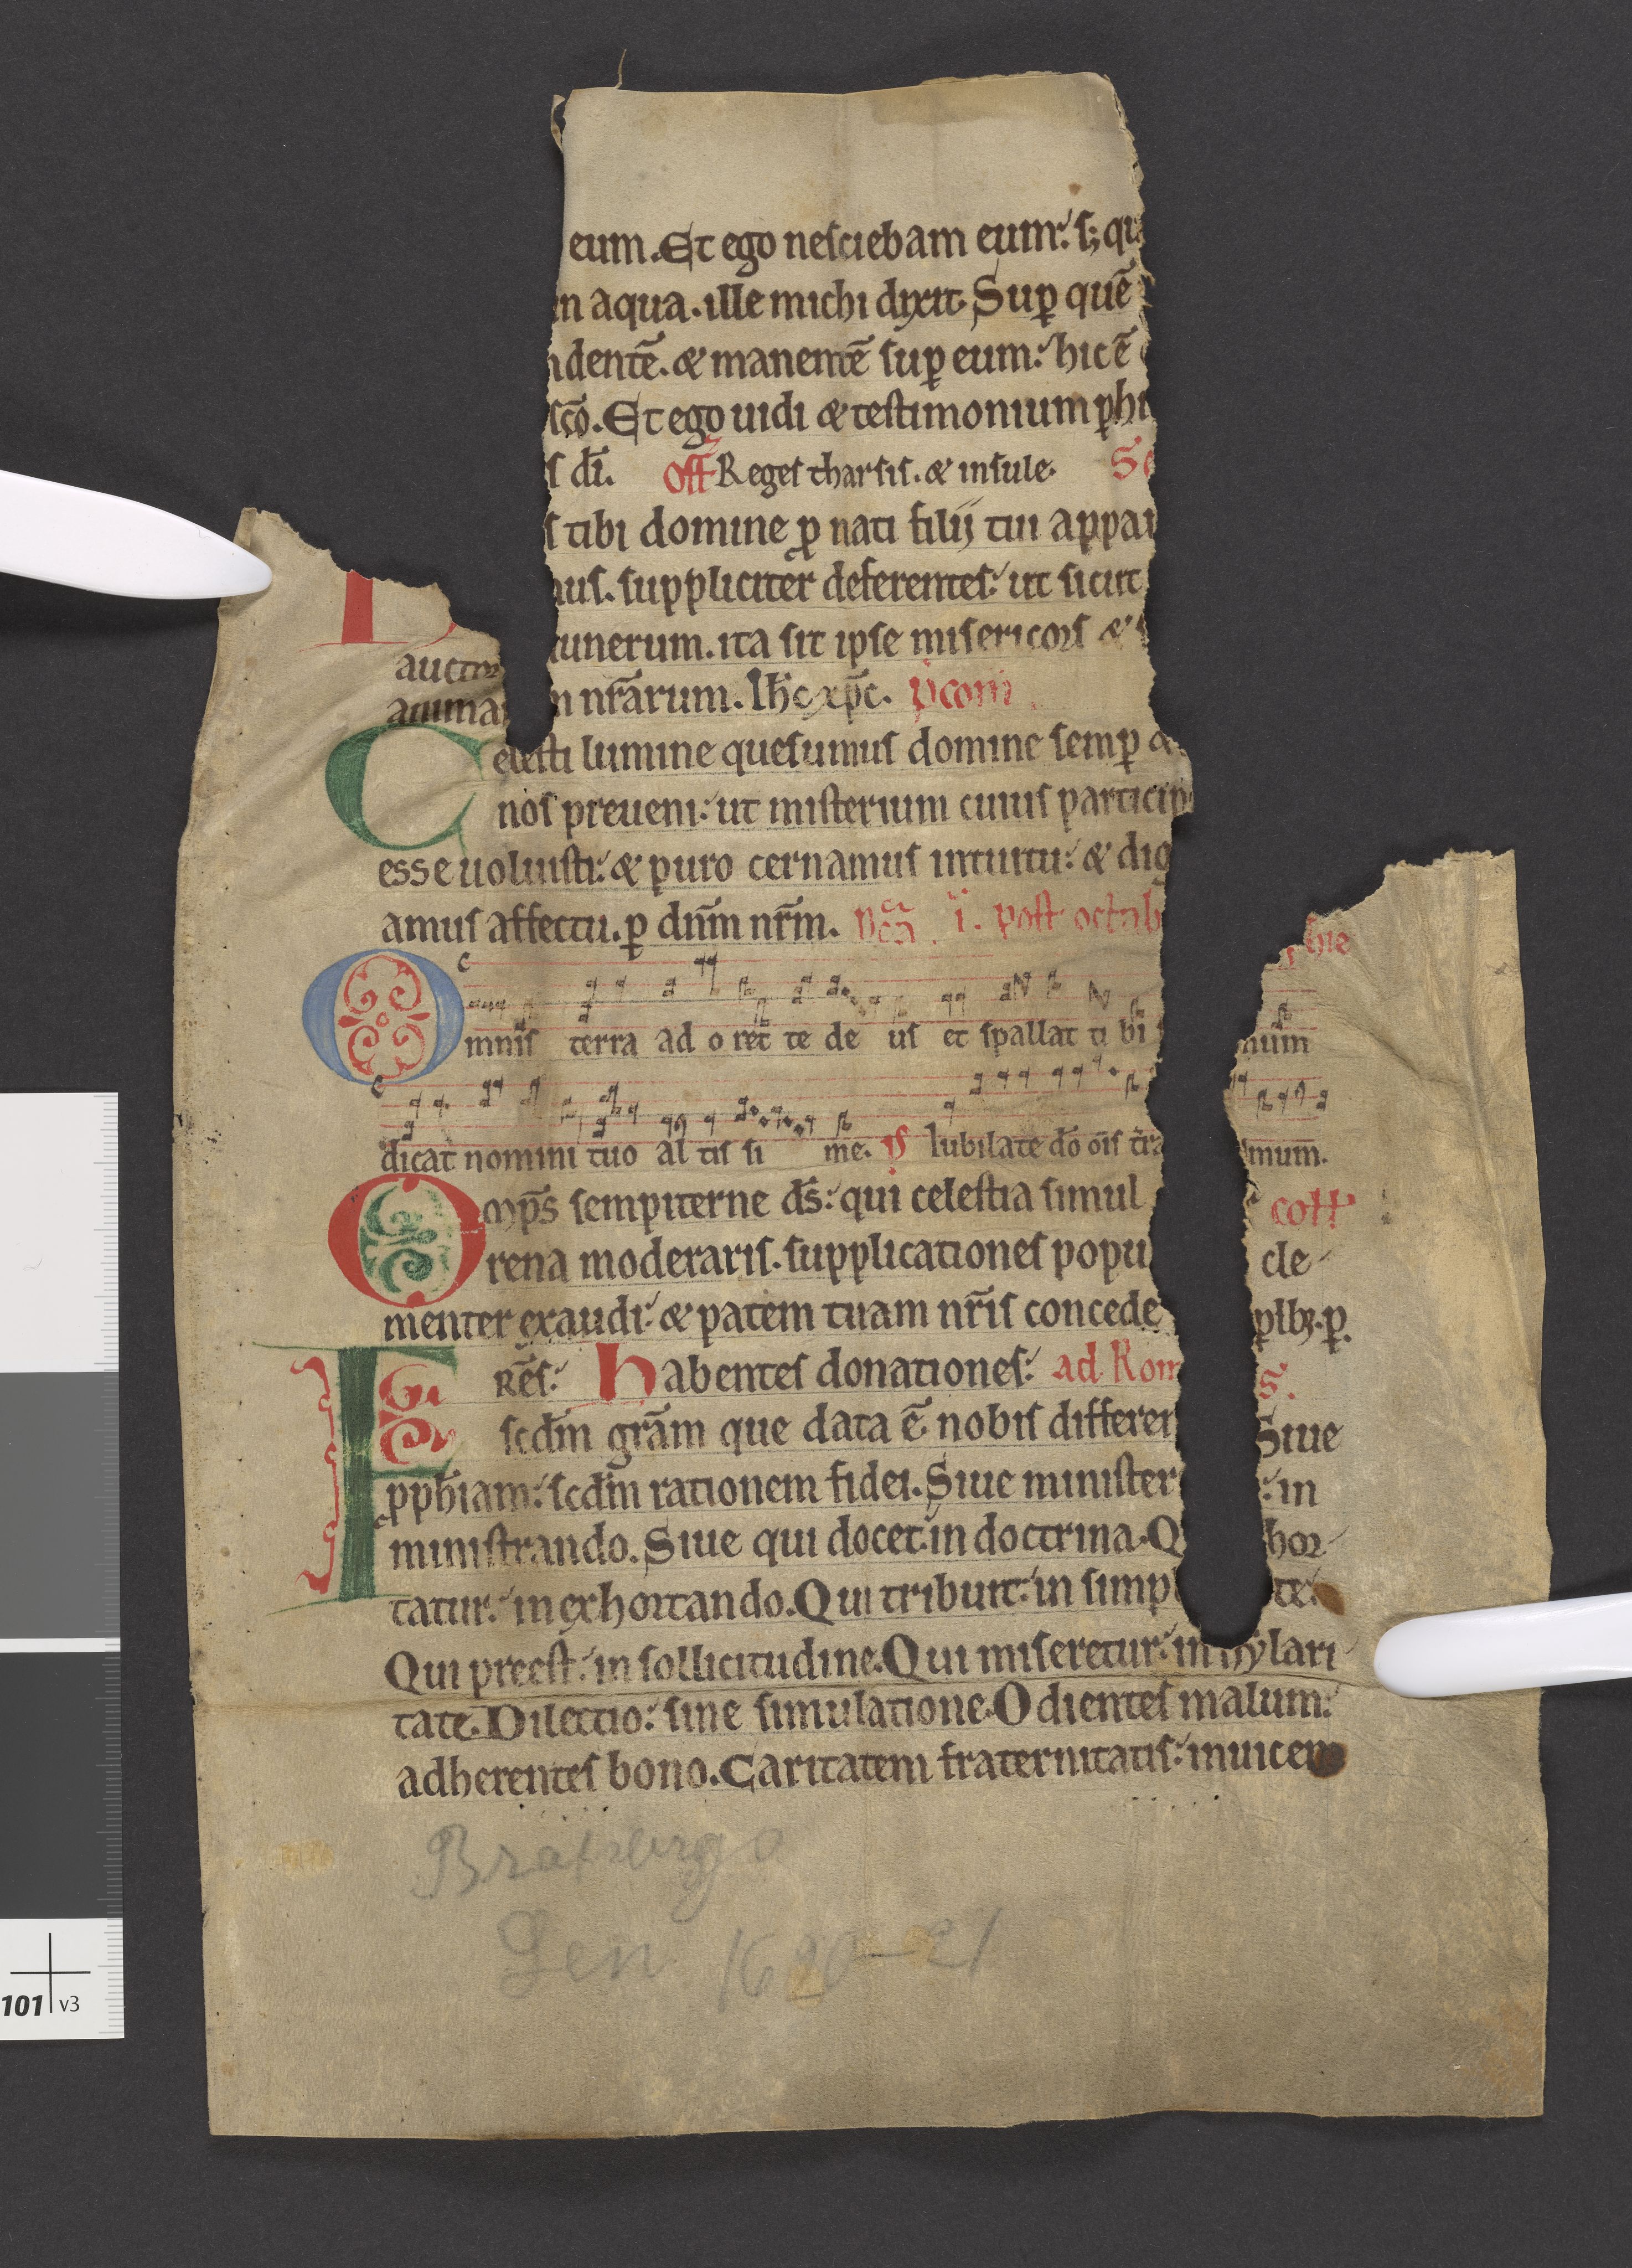 eum. Et ego nesciebam eum: sꝫ qu
n aqua. ille michi dixit. Suꝑ quē
ndentē. & manentē suꝑ eum: hic ē
sc̄o. Et ego uidi & testimonium ꝑhi
s dī. Off Reges tharsis. & insule. Se
s tibi domine ꝓ nati filij tui appar
us. suppliciter deferentes: ut sicut
unerum. ita sit ipse misericors &
aucto
anima n nr̄arum. Ihc xp̄c. pcom
Celesti lumine quesumus domine semꝑ &
nos preueni: ut misterium cuius particip
esse uoluisti: & puro cernamus intuitu: & dig
amus affectu. ꝑ dnm̄ nrm̄. i. post octab hie
Omnis terra ad o ret te de us et spallat ti bi num
dicat nomini tuo al tis si me. ps Iubilate dō oīs t̄ra mum.
Omp̄s sempiterne ds̄: qui celestia simul coll
rena moderaris. supplicationes popu cle
menter exaudi: & pacem tuam nr̄is concede p̄lbꝫ. ꝑ.
FRēs: Habentes donationes: ad Rom s.
scdm̄ grām que data ē nobis differen Siue
ꝓph̄iam: scdm̄ rationem fidei. Siue minister : in
ministrando. Siue qui docet: in doctrina. Q hor
tatur: in exhortando. Qui tribuit: in simp te.
Qui preest: in sollicitudine. Qui miseretur: in hylari
tate. Dilectio: sine simulatione. Odientes malum:
adherentes bono. Caritatem fraternitatis: inuicem
Len 1620-21
101 v3